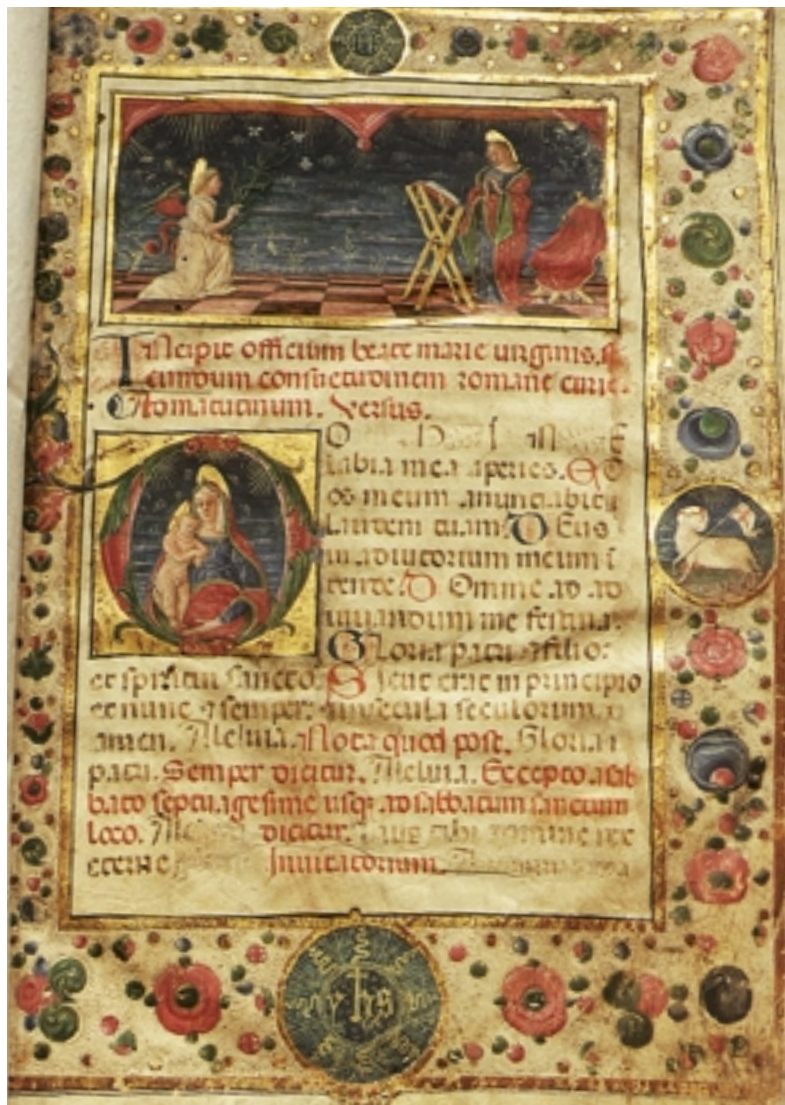 Incipit officium beate marie virginis. s
ecundum consuetudinem romane curie.
Ad matutinum. Versus.
O
labia mea aperies. Et
os meum anunciabit
laudem tuam. Deus
in adiutorium meum i
tende. Domine ad ad
iuuandum me festina.
Gloria patri ⁊ filio:
et spiritui sancto. Sicut erat in principio
et nunc ⁊ semper: ⁊ in secula seculorum.
amen. Alleluia. Nota quod post. Gloria
patri. Semper dicitur. Alleluia. Excepto a sab
bato septuagesime usq; ad sabbatum sanctum
loco. dicitur. Laus tibi domine rex
eterne Inuitatorium.
yhs